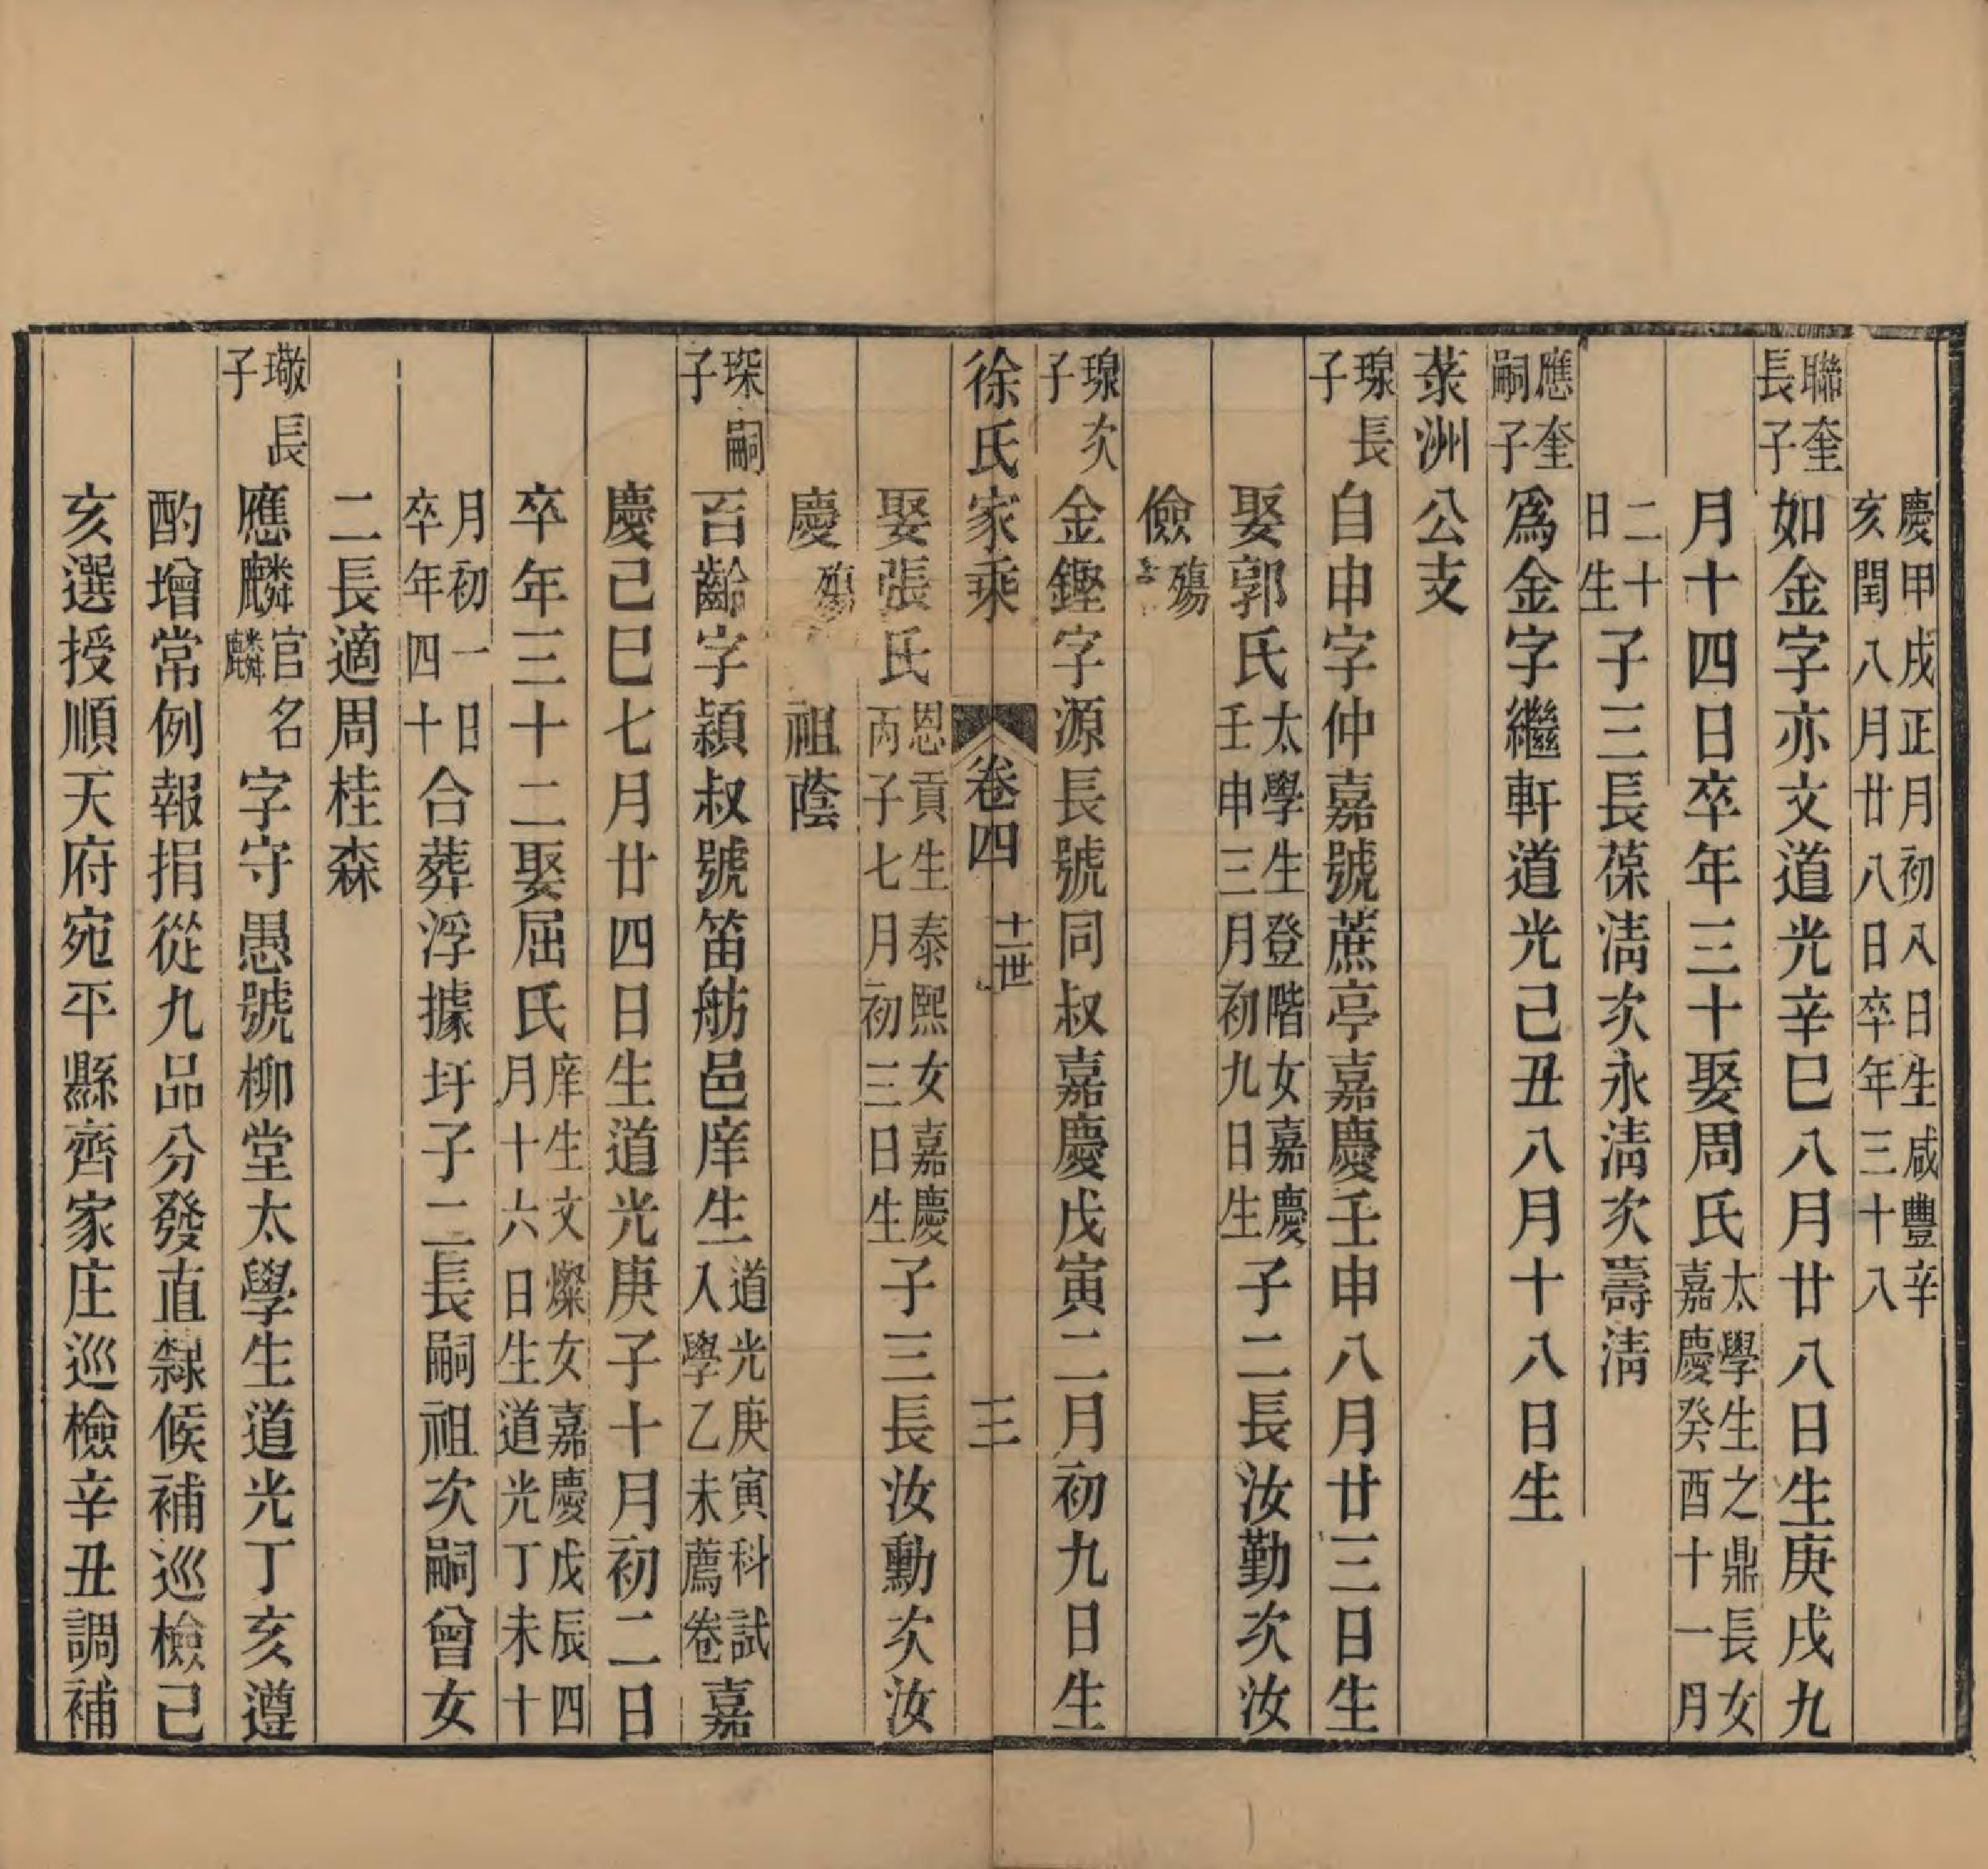 慶甲戌正月初八日生咸豐辛
亥閏八月廿八日卒年三十八
聯奎長子如金字亦文道光辛巳八月廿八日生庚戌九
月十四日卒年三十娶周氏太學生之鼎長女嘉慶癸酉十一月
二十日生子三長葆淸次永淸次壽淸
應奎嗣子爲金字繼軒道光己丑八月十八日生
萊洲公支
瑔長子自申字仲嘉號蔗亭嘉慶壬申八月廿三日生
娶郭氏太學生登階女嘉慶壬申三月初九日生子二長汝勤次汝
儉殤
瑔次子金鏗字源長號同叔嘉慶戊寅二月初九日生
徐氏家乘 卷四 十一世 三
娶張氏恩貢生泰熙女嘉慶丙子七月初三日生子三長汝勳次汝
慶殤 祖蔭
琛嗣子百齡字穎叔號笛舫邑庠生道光庚寅科試入學乙未薦卷嘉
慶己巳七月廿四日生道光庚子十月初二日
卒年三十二娶屈氏庠生文燦女嘉慶戊辰四月十六日生道光丁未十
月初一日卒年四十合葬浮據圩子二長嗣祖次嗣曾女
二長適周桂森
璥長子應麟官名麟字守愚號柳堂太學生道光丁亥遵
酌增常例報捐從九品分發直隸候補巡檢己
亥選授順天府宛平縣齊家庄巡檢辛丑調補